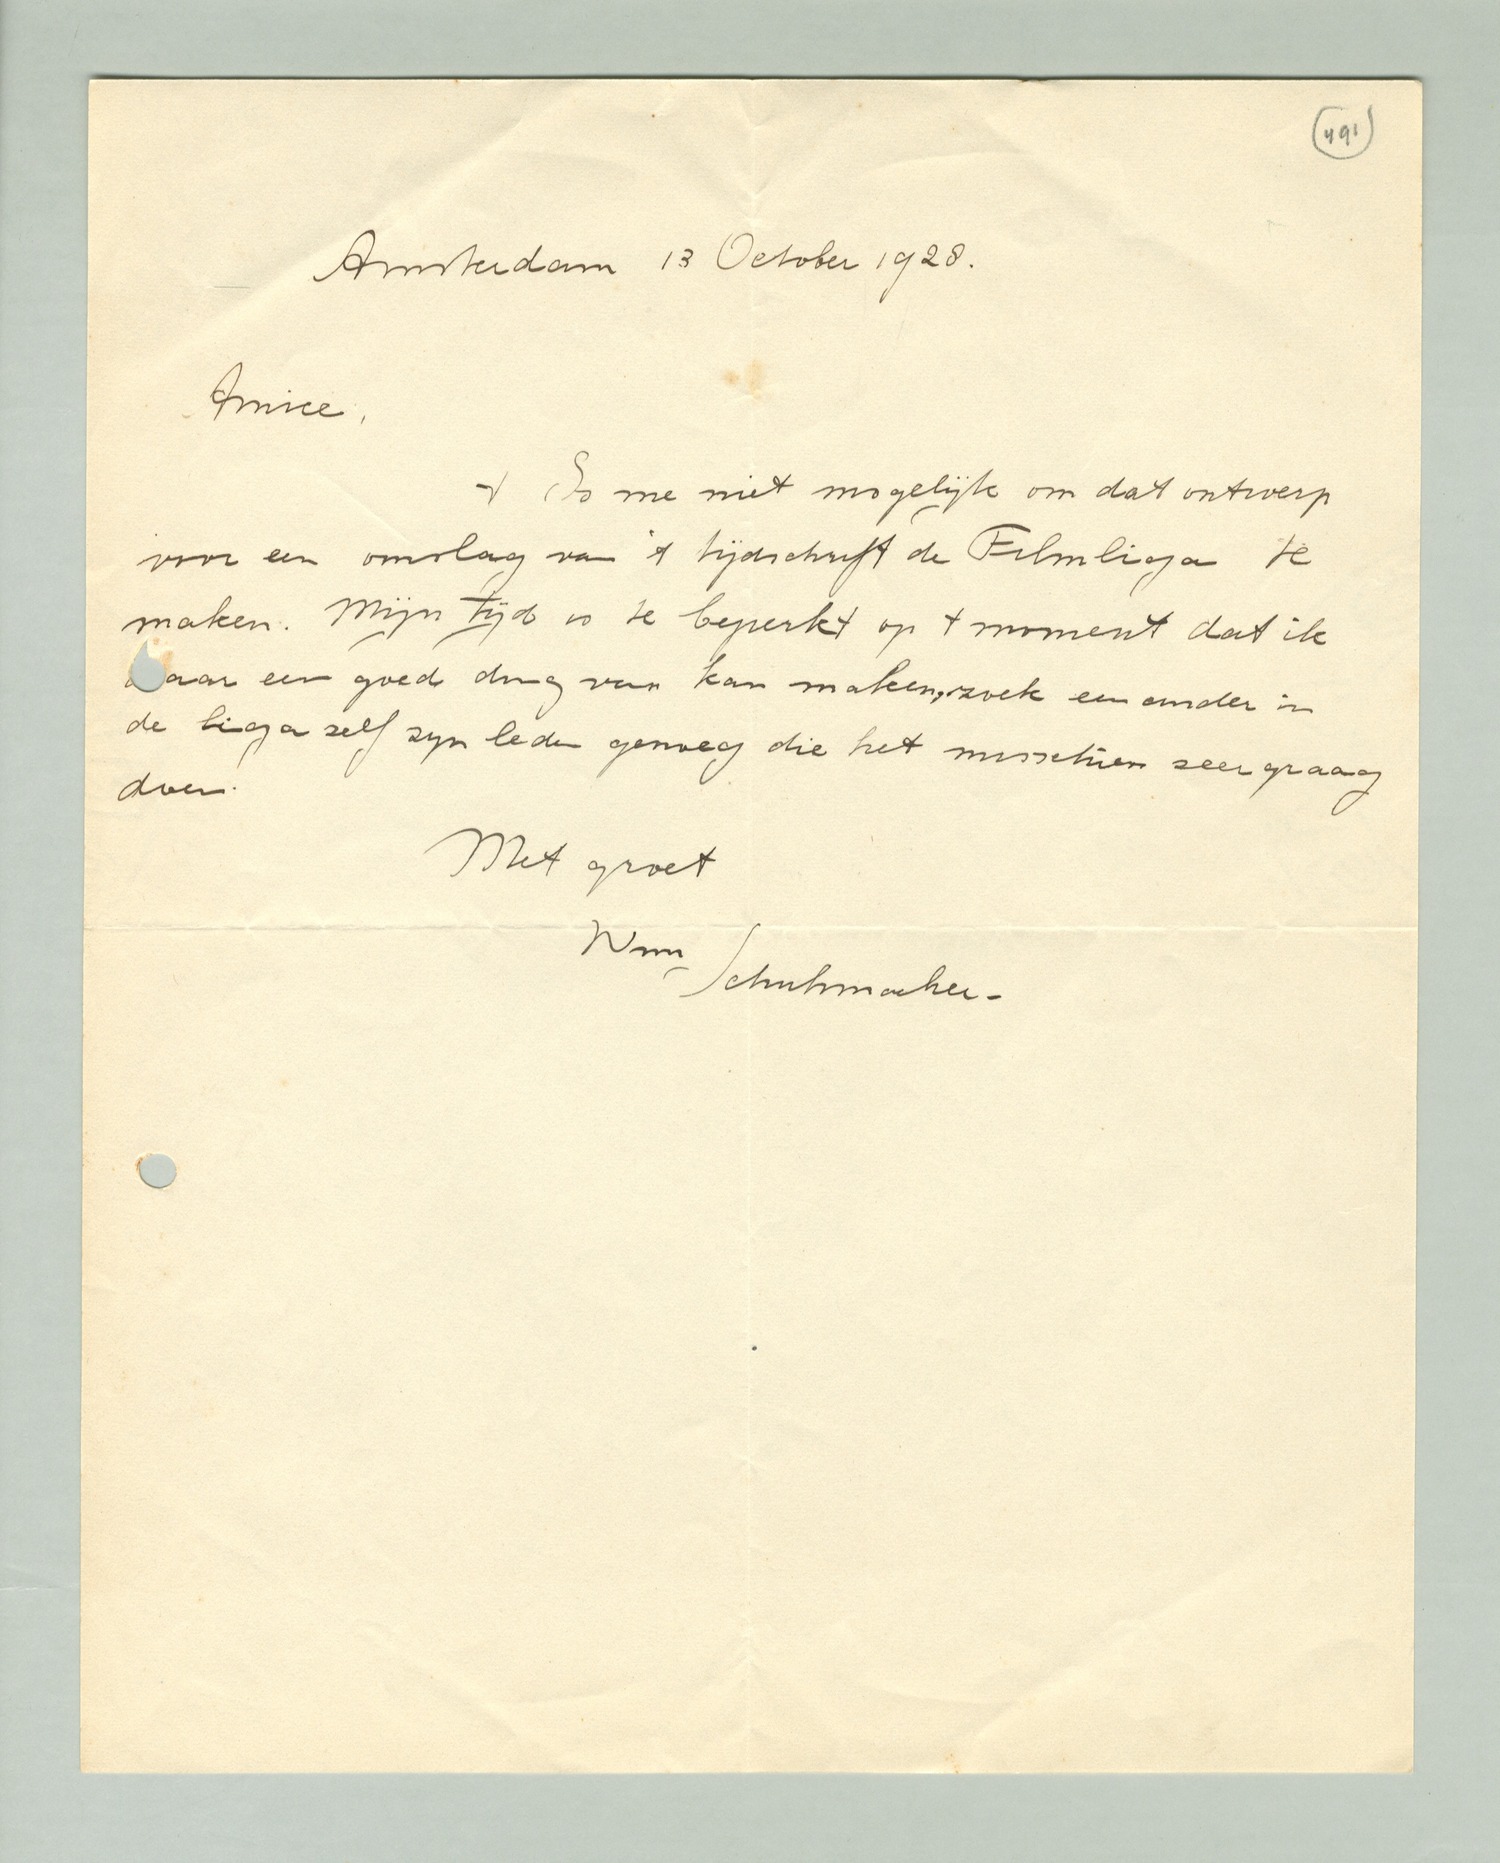 491
Amsterdam 13 October 1928.
Amice,
't Is me niet mogelijk om dat ontwerp
voor een omslag van 't tijdschrift de Filmliga te
maken. Mijn tijd is te beperkt op 't moment dat ik
daar een goed ding van kan maken, zoek een ander in
de liga zelf zijn leden genoeg die het misschien zeer graag
doen.
Met groet
Wim Schuhmacher.